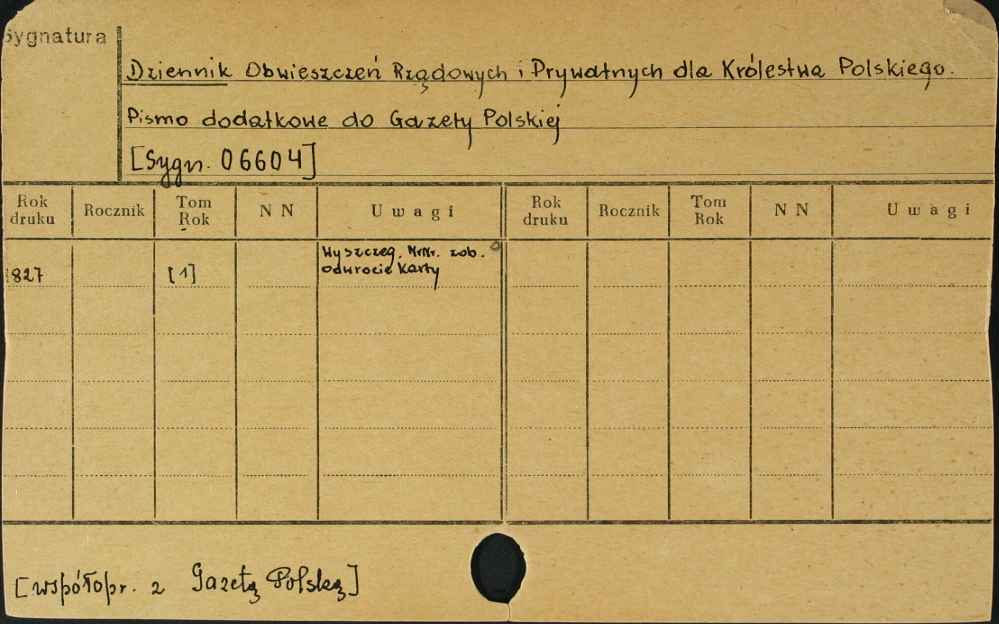 Sygnatura
Dziennik Obwieszczeń Rządowych i Prywatnych dla Królestwa Polskiego.
Pismo dodatkowe do Gazety Polskiej
[Sygn. 06604]
Rok druku Rocznik Tom Rok NN Uwagi Rok druku Rocznik Tom Rok NN Uwagi
Wyszczeg. NrNr. zob.
1827 [1] odwrocie Karty
[współopr. z Gazetą Polską]